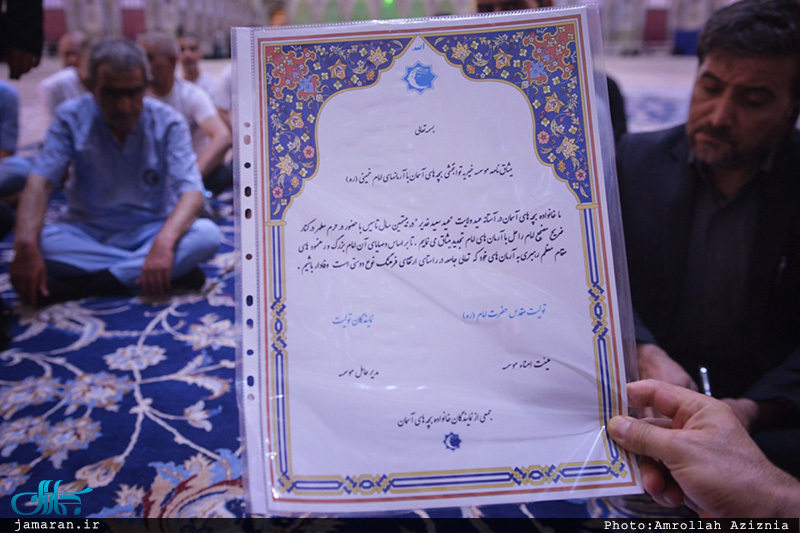 بسمه تعالی
میثاق نامه موسسه خیریه توانبخشی بچه های آسمان با آرمانهای امام خمینی (ره)
ما خانواده بچه های آسمان در آستانه عید ولایت "عید سعید غدیر" در بیستمین سال تاسیس با حضور در حرم مطهر در کنار
ضریح مضجع امام راحل با آرمان های امام تجدید میثاق می نماییم . تا بر اساس وصایای آن امام بزرگ و رهنمود های
مقام معظم رهبری به آرمان های خود که تعالی جامعه در راستای ارتقای فرهنگ نوع دوستی است وفادار باشیم .
تولیت مقدس حضرت امام (ره)
نمایندگان تولیت
هیئت امناء موسسه
مدیر عامل موسسه
جمعی از نمایندگان خانواده بچه های آسمان
جماران
jamaran.ir
Photo:Amrollah Aziznia